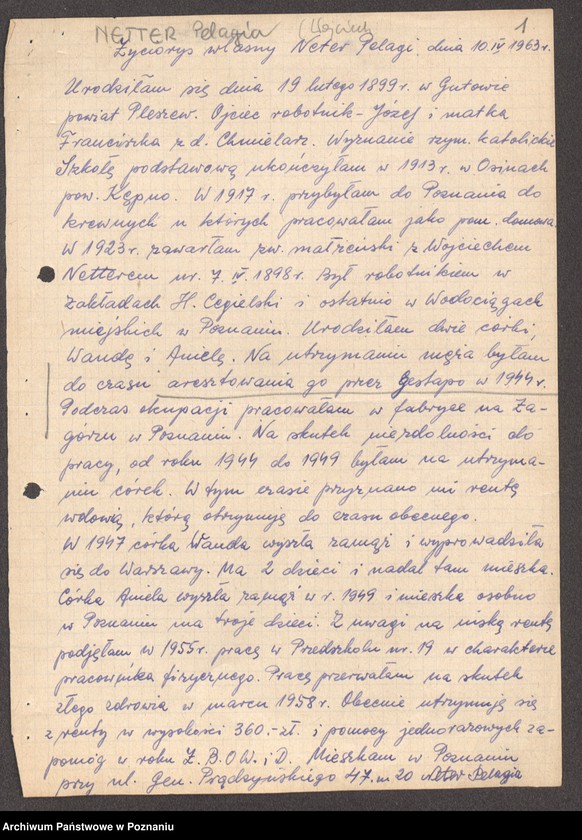 NETTER Pelagia (Wojciech 1
Życiorys własny Neter Pelagi, dnia 10.IV 1963r.
Urodziłam się dnia 19 lutego 1899r. w Gutowie
powiat Pleszew. Ojciec robotnik - Józef i matka
Franciszka z d. Chmielarz. Wyznanie rzym. katolickie
Szkołę podstawową ukończyłam w 1913r. w Osinach
pow. Kępno. W 1917r. przybyłam do Poznania do
krewnych u których pracowałam jako pom. domowa.
W 1923r. zawarłam zw. małżeński z Wojciechem
Netterem ur. 7. IV. 1898r. Był robotnikiem w
Zakładach H. Cegielski i ostatnio w Wodociągach
miejskich w Poznaniu. Urodziłam dwie córki,
Wandę i Anielę. Na utrzymaniu męża byłam
do czasu aresztowania go przez Gestapo w 1944r.
Podczas okupacji pracowałam w fabryce na Za-
górzu w Poznaniu. Na skutek niezdolności do
pracy, od roku 1944 do 1949 byłam na utrzyma-
niu córek. W tym czasie przyznano mi rentę
wdowią, którą otrzymuję do czasu obecnego.
W 1947 córka Wanda wyszła zamąż i wyprowadziła
się do Warszawy. Ma 2 dzieci i nadal tam mieszka.
Córka Aniela wyszła zamąż w r. 1949 i mieszka osobno
w Poznaniu ma troje dzieci. Z uwagi na niską rentę
podjęłam w 1955r. pracę w Przedszkolu nr. 19 w charakterze
pracownika fizycznego. Pracę przerwałam na skutek
złego zdrowia w marcu 1958r. Obecnie utrzymuję się
z renty w wysokości 360.-zł. i pomocy jednorazowych za-
pomóg w roku Z.B.O.W.i D. Mieszkam w Poznaniu
przy ul. Gen. Prądzyńskiego 47. m 20 Neter Pelagia
Archiwum Państwowe w Poznaniu